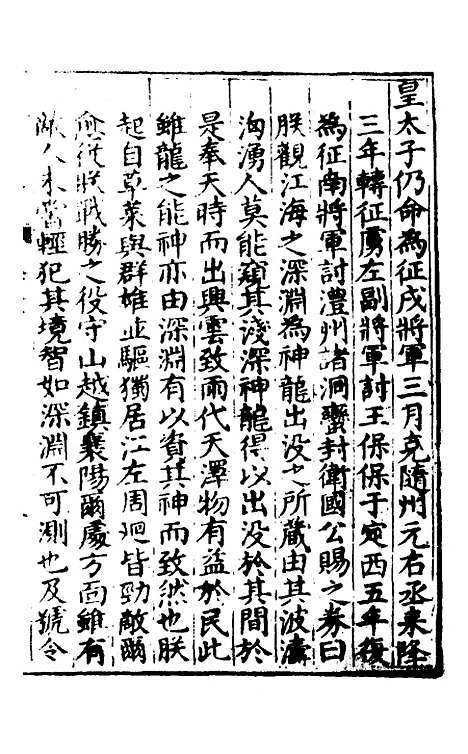 皇太子仍命為征戍將軍三月克隨州元右丞來降
三年轉征虜左副將軍討王保保于定西五年復
為征南將軍討澧州諸洞蠻封衛國公賜之券曰
朕觀江海之深淵為神龍出没之所蔵由其波濤
洶湧人莫能窺其淺深神龍得以出没於其間於
是奉天時而出興雲致雨代天澤物有益於民此
雖龍之能神亦由深淵有以資其神而致然也朕
起自草萊與群雄並驅獨居江左周迴皆勁敵爾
愈從朕戰勝之役守山越鎮襄陽爾處方面雖有
敵人未嘗輕犯其境智如深淵不可測也及號令